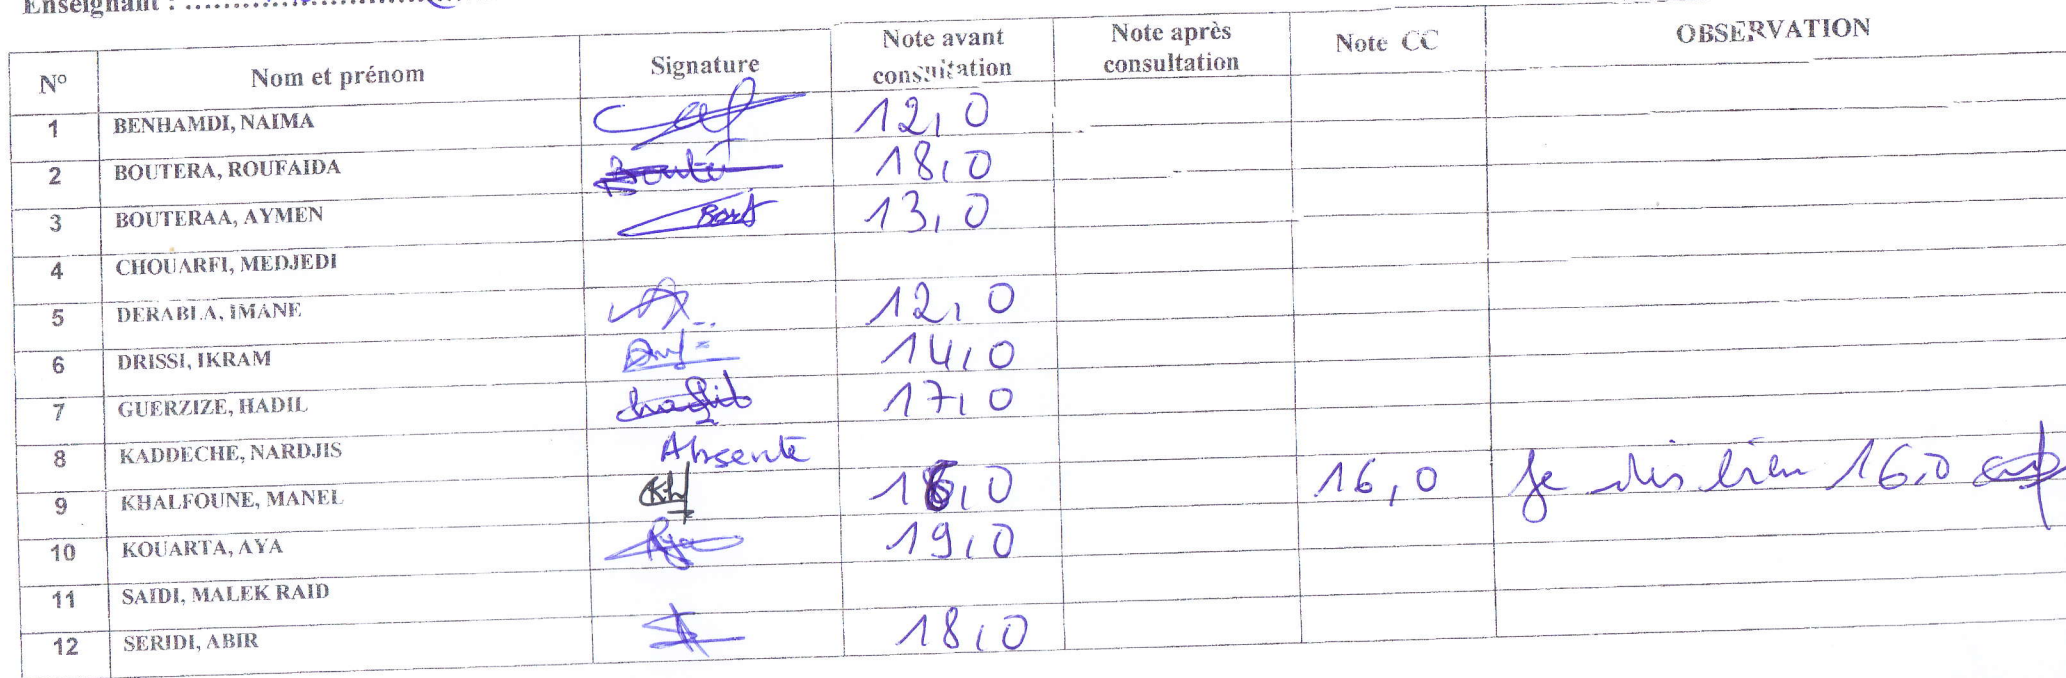 Enseignant : ....................................
N° Nom et prénom Signature Note avant consultation Note après consultation Note CC OBSERVATION
1 BENHAMDI, NAIMA 12,0
2 BOUTERA, ROUFAIDA Boute 18,0
3 BOUTERAA, AYMEN 13,0
4 CHOUARFI, MEDJEDI
5 DERABLA, IMANE 12,0
6 DRISSI, IKRAM 14,0
7 GUERZIZE, HADIL 17,0
8 KADDECHE, NARDJIS Absente
9 KHALFOUNE, MANEL 16,0 16,0 Je dis bien 16,0
10 KOUARTA, AYA 19,0
11 SAIDI, MALEK RAID
12 SERIDI, ABIR 18,0